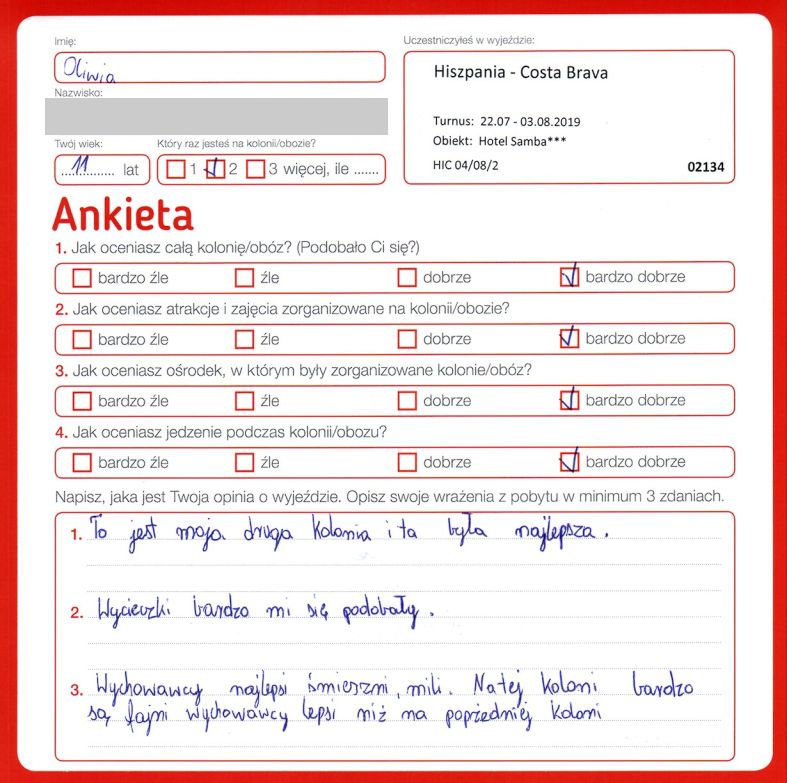 Imię:
Oliwia
Nazwisko:
Twój wiek:
11 lat
Który raz jesteś na kolonii/obozie?
1 2 3 więcej, ile .......
Uczestniczyłeś w wyjeździe:
Hiszpania - Costa Brava
Turnus: 22.07 - 03.08.2019
Obiekt: Hotel Samba***
HIC 04/08/2 02134
Ankieta
1. Jak oceniasz całą kolonię/obóz? (Podobało Ci się?)
bardzo źle źle dobrze bardzo dobrze
2. Jak oceniasz atrakcje i zajęcia zorganizowane na kolonii/obozie?
bardzo źle źle dobrze bardzo dobrze
3. Jak oceniasz ośrodek, w którym były zorganizowane kolonie/obóz?
bardzo źle źle dobrze bardzo dobrze
4. Jak oceniasz jedzenie podczas kolonii/obozu?
bardzo źle źle dobrze bardzo dobrze
Napisz, jaka jest Twoja opinia o wyjeździe. Opisz swoje wrażenia z pobytu w minimum 3 zdaniach.
1. To jest moja druga kolonia i ta była najlepsza.
2. Wycieczki bardzo mi się podobały.
3. Wychowawcy najlepsi śmieszni, mili. Na tej koloni bardzo
są fajni wychowawcy lepsi niż na poprzedniej koloni